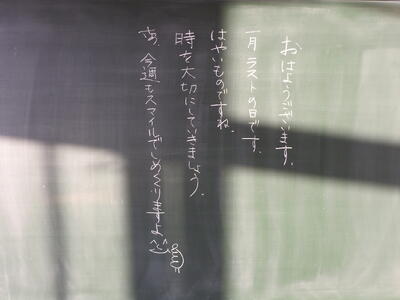 おはようございます。
一月ラストの日です。
はやいものですね。
時を大切にしていきましょう。
さあ、今週もスマイルでしめくくりますよ